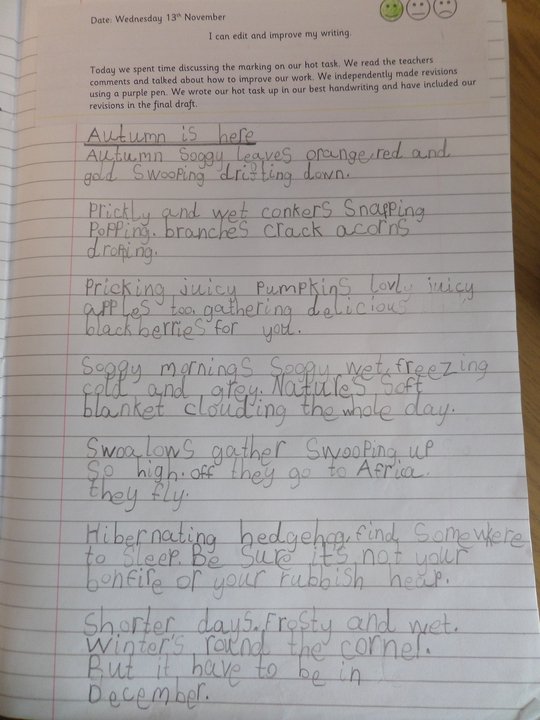 Date: Wednesday 13th November
I can edit and improve my writing.
Today we spent time discussing the marking on our hot task. We read the teachers
comments and talked about how to improve our work. We independently made revisions
using a purple pen. We wrote our hot task up in our best handwriting and have included our
revisions in the final draft.
Autumn is here
Autumn Soggy leaves orange, red and
gold Swooping drifting down.
Prickly and wet conkers Snapping
Popping. branches crack acorns
dropping.
Pricking juicy Pumpkins lovly juicy
apples too. gathering delicious
blackberries for you.
Soggy mornings Soggy wet, freezing
cold and grey. Natures Soft
blanket clouding the whole day.
Swoalows gather Swooping up
So high. off they go to Africa
they fly.
Hibernating hedgehog, find Somewhere
to Sleep. Be Sure it's not your
bonfire or your rubbish heap.
Shorter days. Frosty and wet.
Winter's round the corner.
But it have to be in
December.